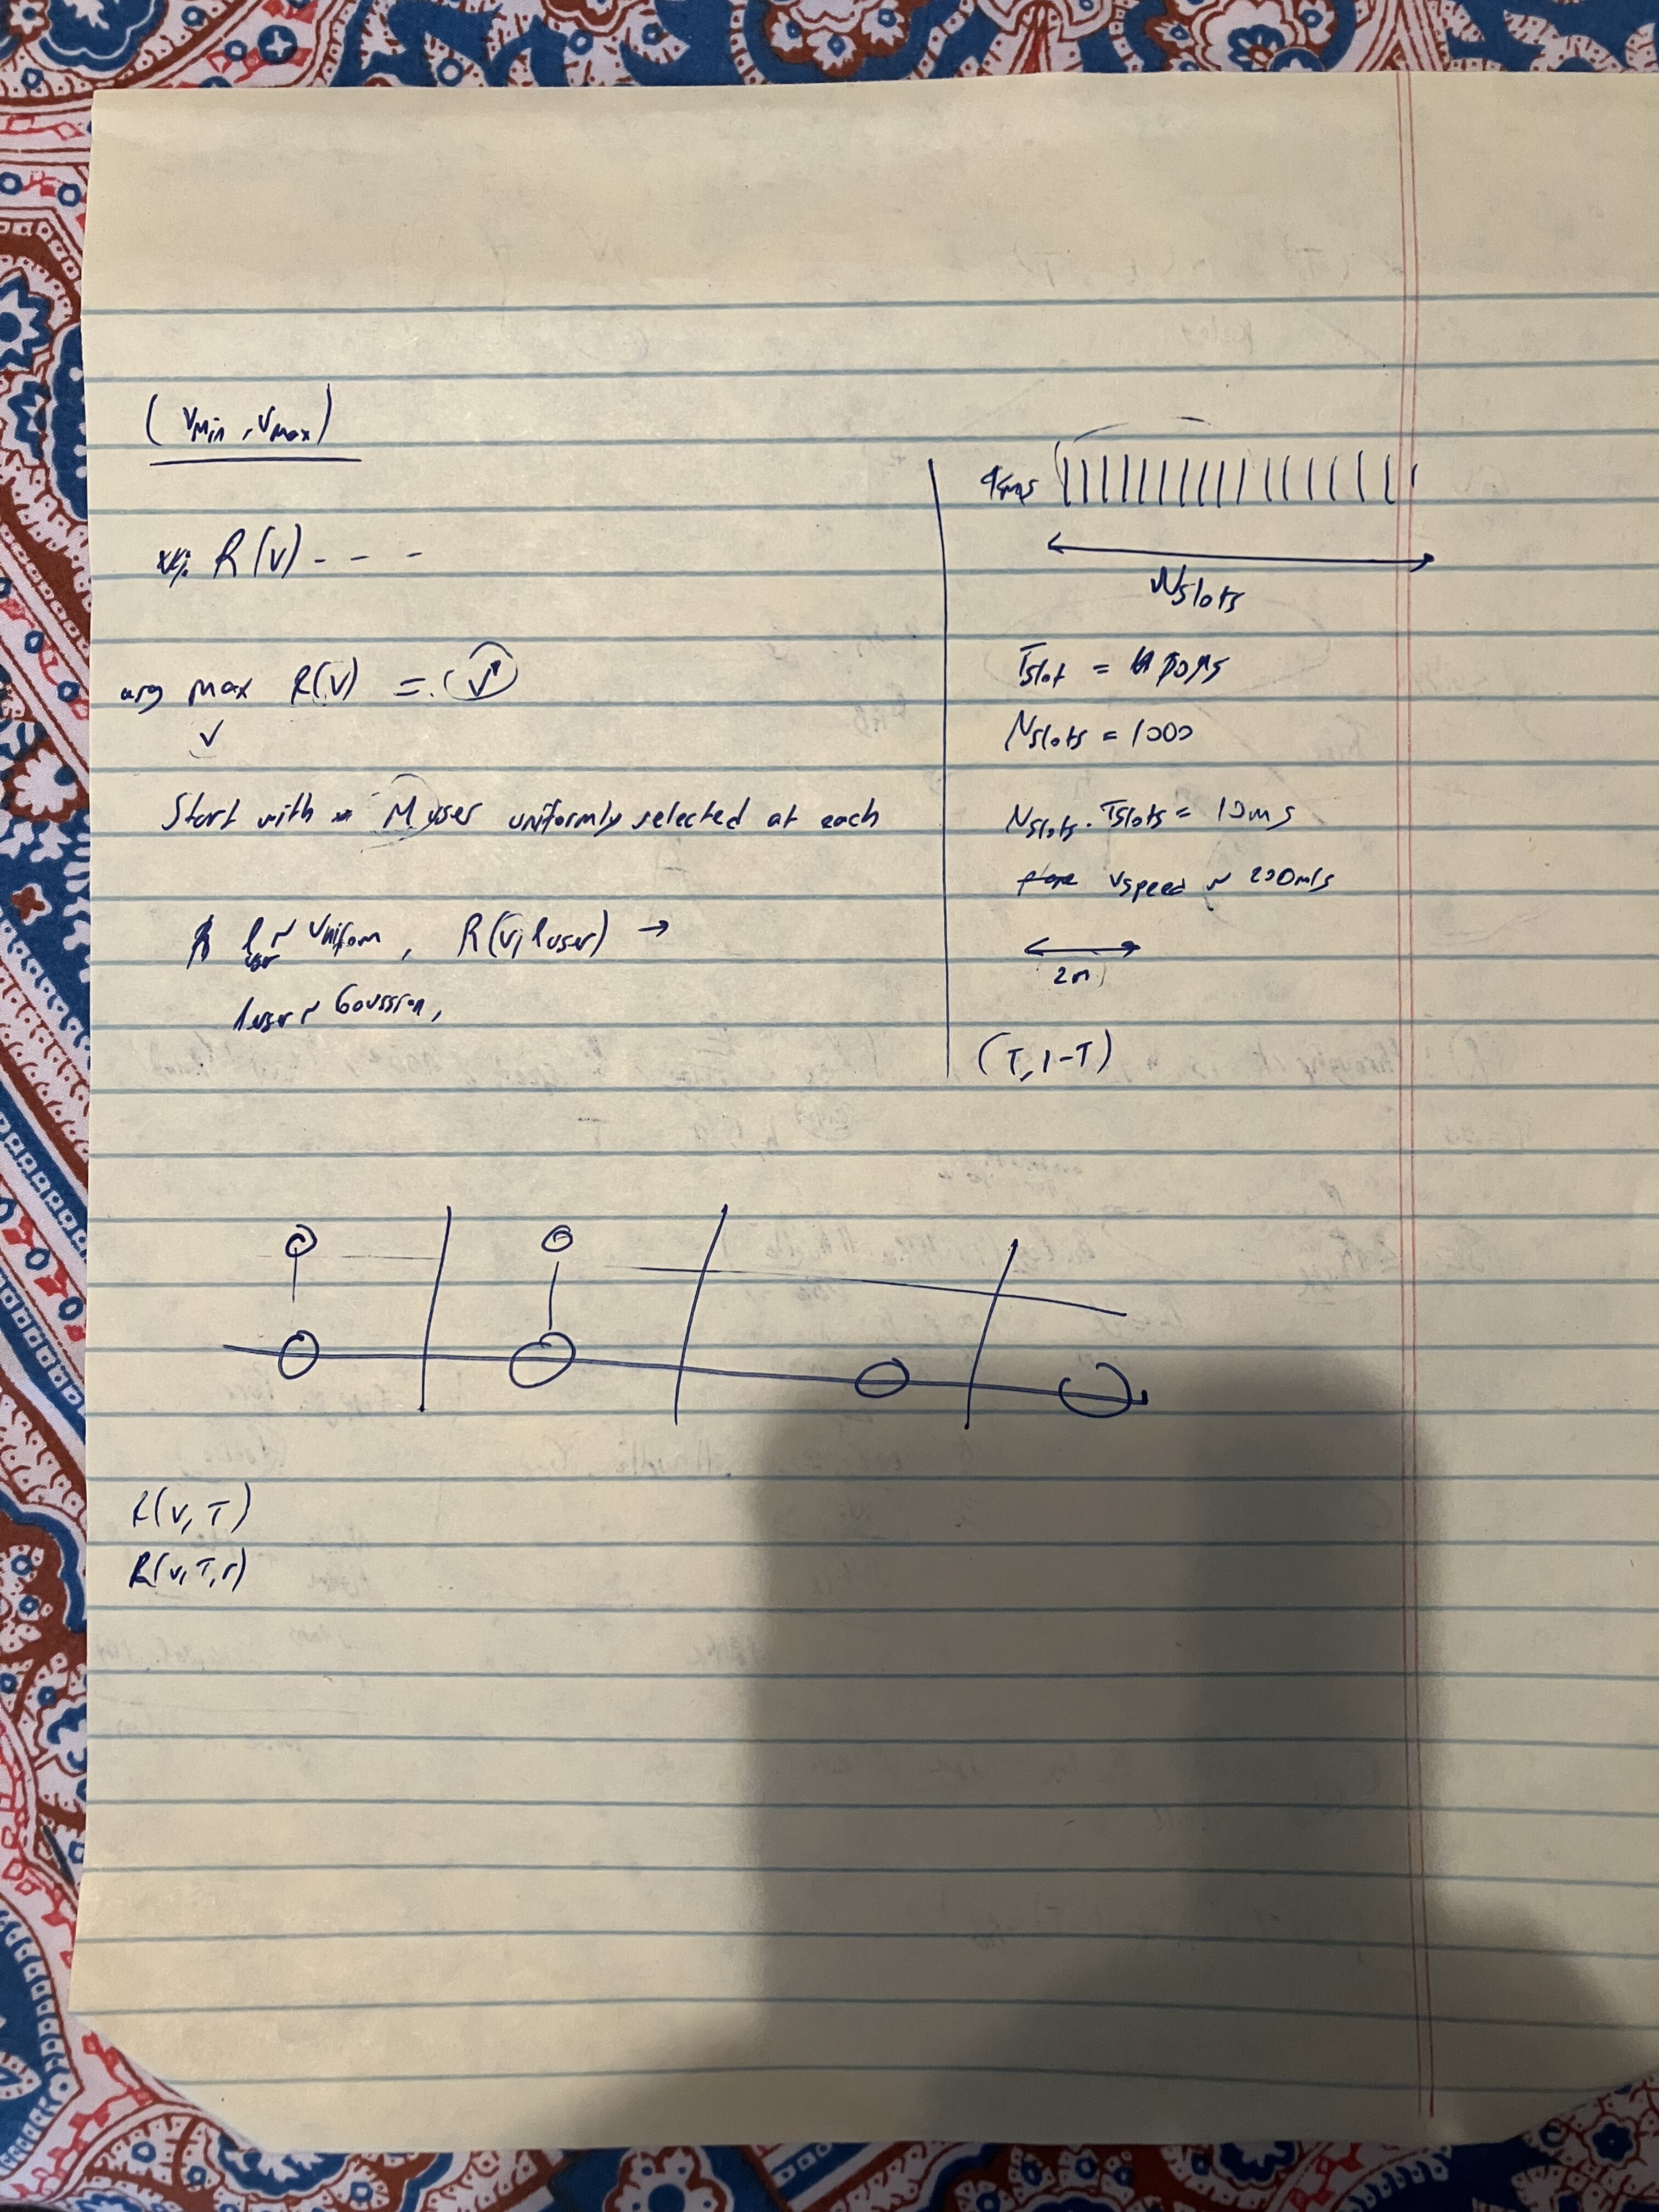 (Vmin, Vmax)
R(v) - - -
arg max R(v) = (v*)
v
Start with M user uniformly selected at each
l user ~ Uniform, R(v, luser) →
luser ~ Gaussian,
Nslots
Tslot = 10μs
Nslots = 1000
Nslots · Tslots = 10ms
vspeed ~ 200m/s
2m
(T, 1-T)
R(v, T)
R(v, T, r)